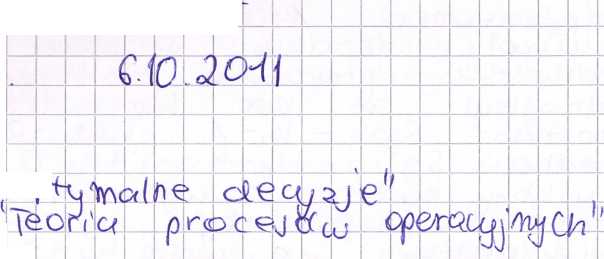 6.10.2011
tymalne decyzje"
"Teoria procesów operacyjnych"